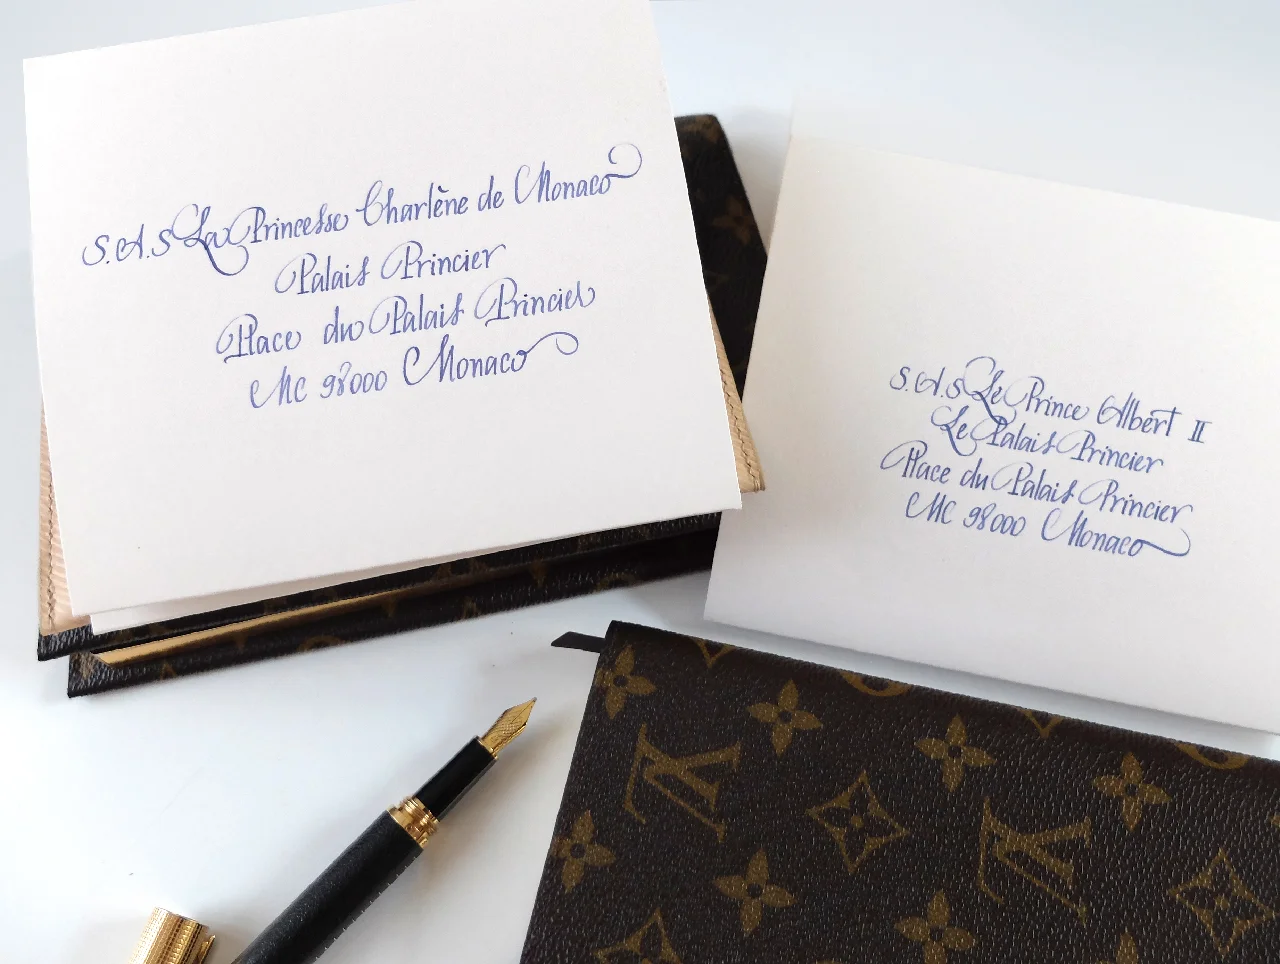 S.A.S La Princesse Charlène de Monaco
Palais Princier
Place du Palais Princier
MC 98000 Monaco
S.A.S Le Prince Albert II
Le Palais Princier
Place du Palais Princier
MC 98000 Monaco
LV
LV